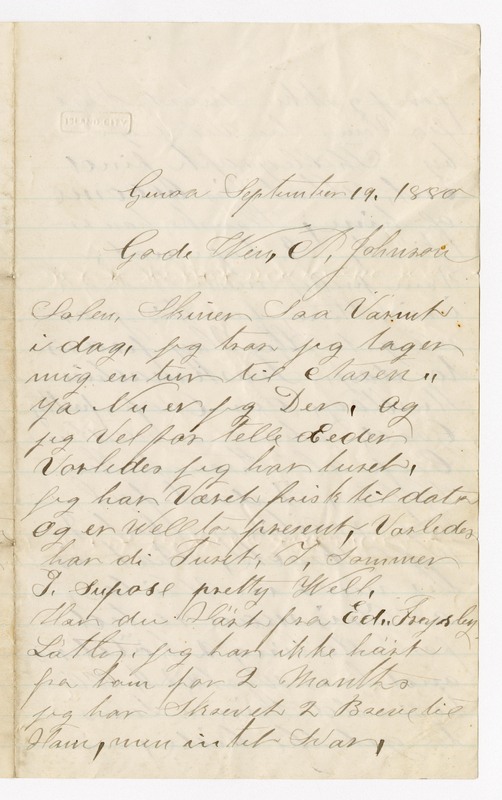 ISLAND CITY
Genoa September 19. 1880
Gode Wen, A, Johnson
Solen, Skiner Saa Varmt
i dag, jeg tror jeg tager
mig en tur til Aasen,,
ya Nu er jeg Der, og
jeg Vel for telle Eeder
Vorledes jeg har turet,
jeg har Været frisk til dato
Og er well to present, Vorledes
har di Turet, I, Sommer
I. Supose pretty Well,
Har du Hört fra Ed,
Latly. jeg har ikke hört
fra ham for 2 Months
jeg har Skrevet 2 Breve til
Ham, men intet Svar,